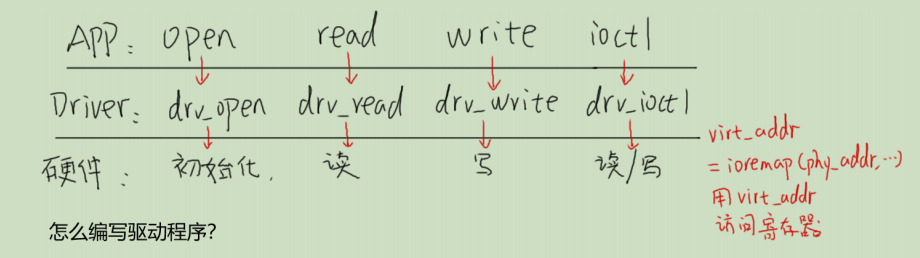 APP: open read write ioctl
Driver: drv_open drv_read drv_write drv_ioctl
硬件: 初始化. 读 写 读/写
virt_addr
= ioremap(phy_addr,...)
用virt_addr
访问寄存器
怎么编写驱动程序?